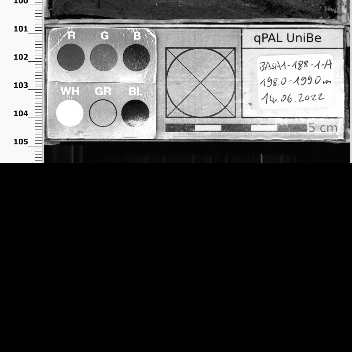 100
101
102
103
104
105
R G B
WH GR BL
qPAL UniBe
BASA1-188-1-A
198.0-199.0 m
14.06.2022
5 cm